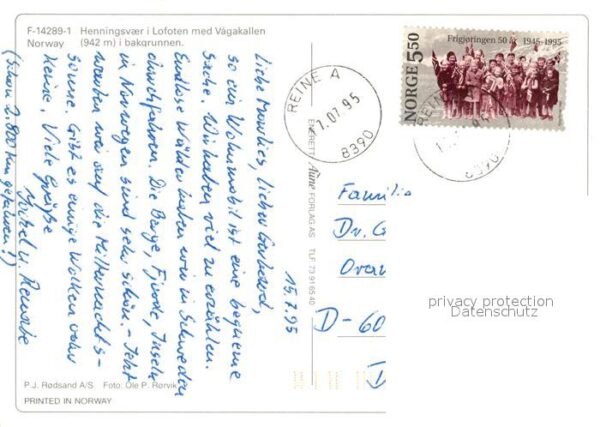 F-14289-1 Henningsvær i Lofoten med Vågakallen
Norway (942 m) i bakgrunnen.
15.7.95
Liebe Monnlies, lieber Gerhard,
so ein Wohnmobil ist eine bequeme
Sache. Wir haben viel zu erzählen.
Endlose Wälder haben wir in Schweden
durchfahren. Die Berge, Fjorde, Inseln
in Norwegen sind sehr schön. - Jetzt
warten wir auf die Mitternachts-
sonne. Gibt es einige Wolken oder
keine. Viele Grüße
u. Renate
(Schon 2.800 km gefahren!)
P.J. Rødsand A/S Foto: Ole P. Rørvik
PRINTED IN NORWAY
ENERETT: Aune FORLAG AS TLF 73 91 65 40
REINE A
1.07.95
8390
Frigjøringen 50 år 1945-1995
NORGE 5.50
REINE A
Familie
Dr. G
Over
D-60
D
privacy protection
Datenschutz